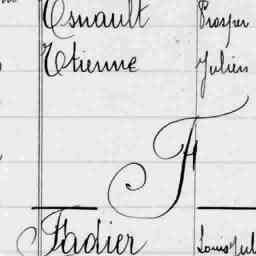 Esnault Prosper
Etienne Julien
F
Fadier Louis Jul